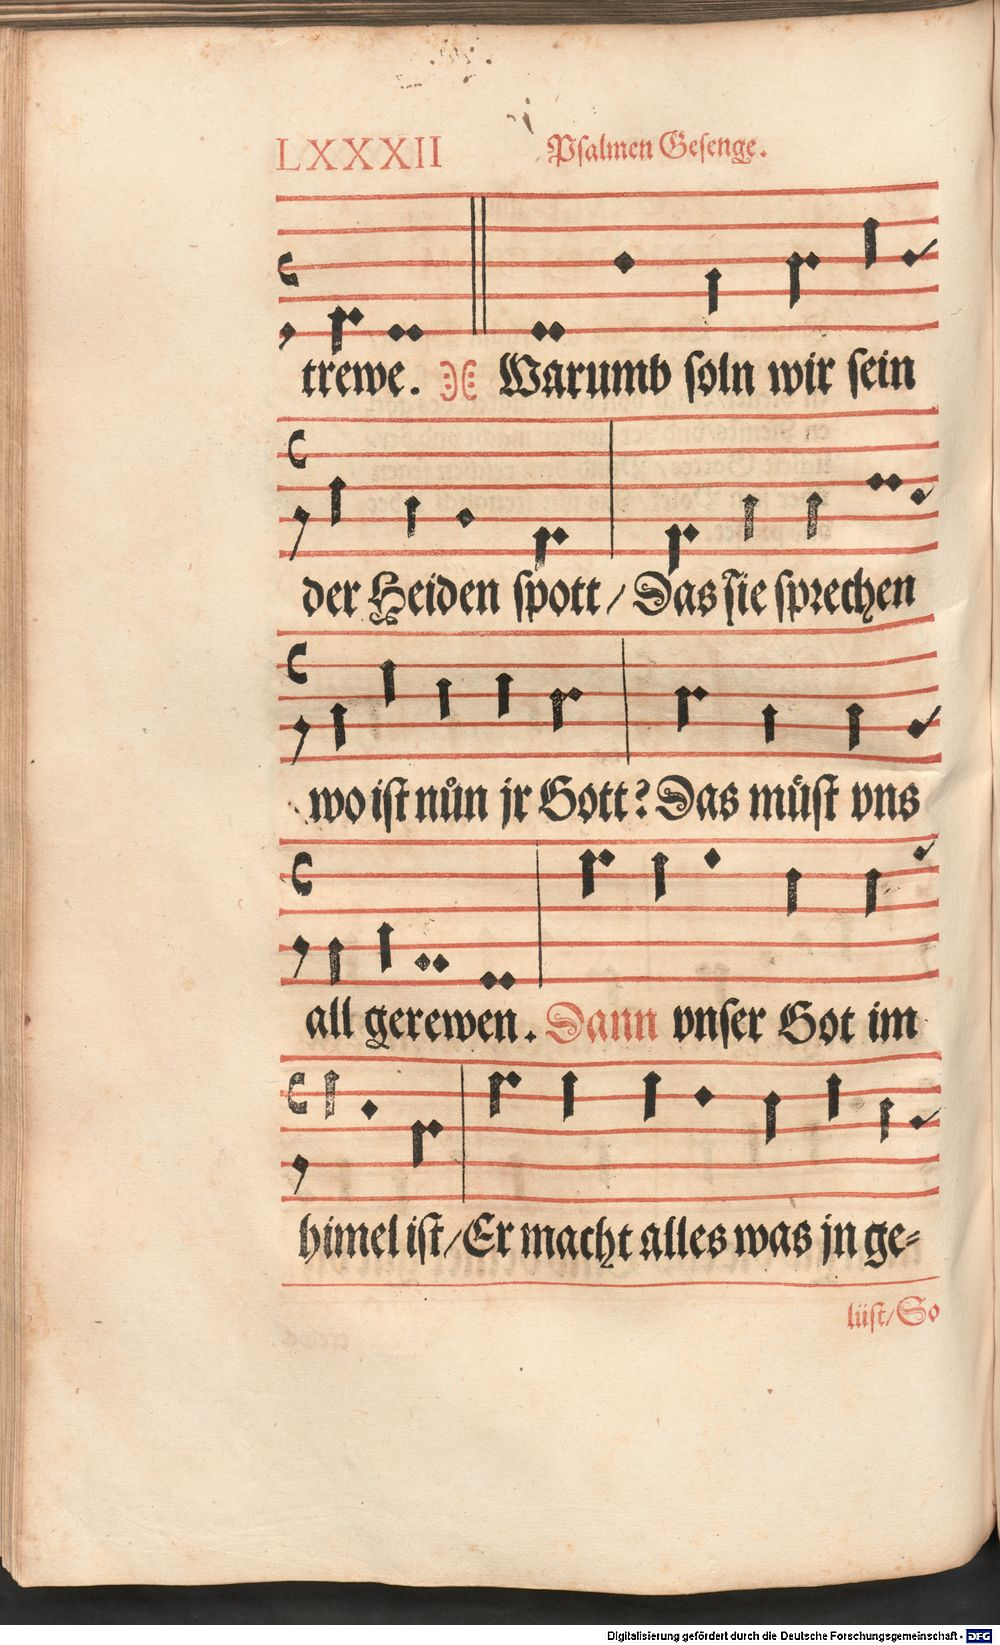 LXXXII Psalmen Gesenge.
trewe. Warumb soln wir sein
der Heiden spott/ Das sie sprechen
wo ist nůn jr Gott? Das müst vns
all gerewen. Dann vnser Got im
himel ist/ Er macht alles was jn ge⸗
lüst/ So
Digitalisierung gefördert durch die Deutsche Forschungsgemeinschaft - DFG